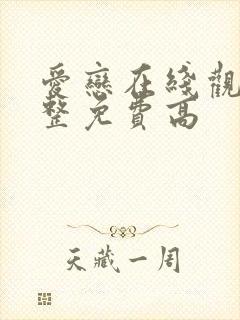 愛戀在綫觀
整免費高
天藏一周